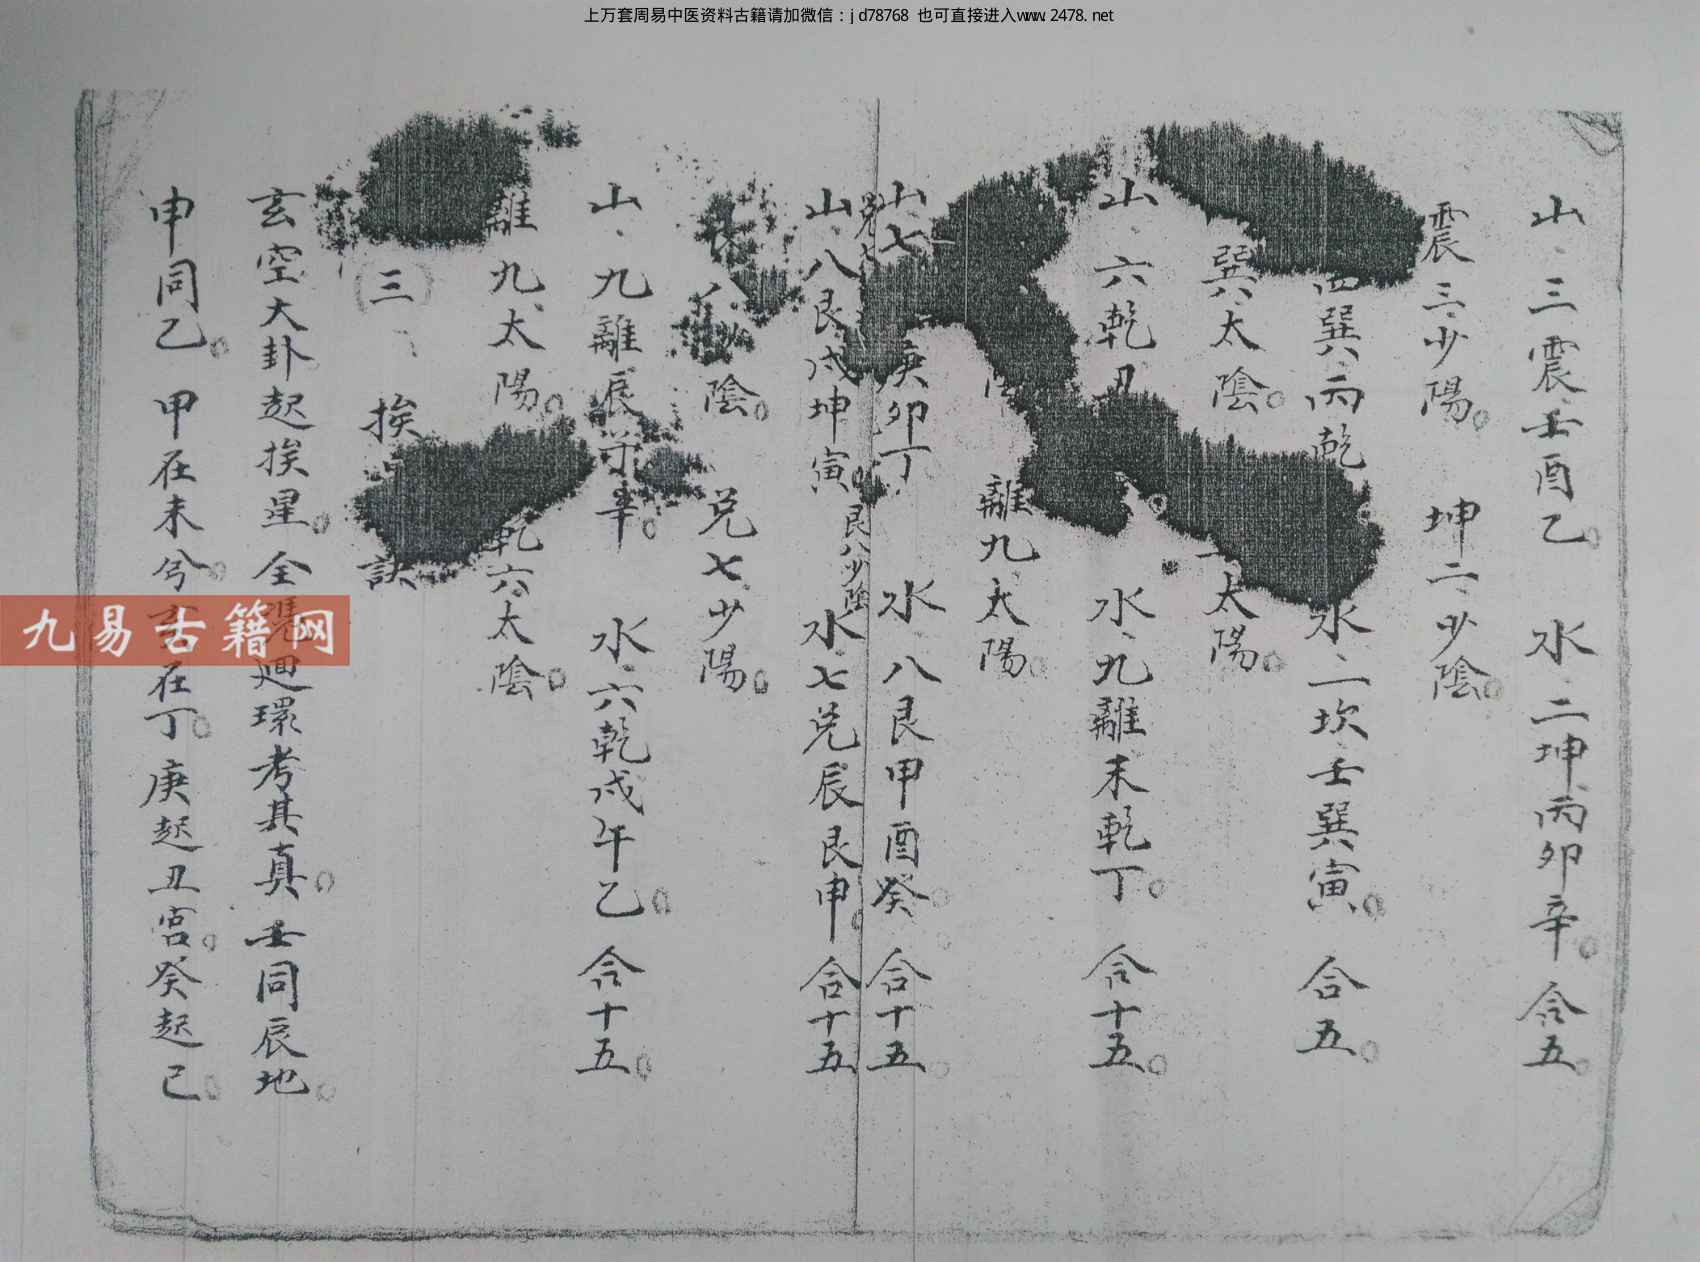 上万套周易中医资料古籍请加微信：jd78768 也可直接进入www.2478.net
山、三震壬酉乙。水、二坤丙卯辛。合五。
震三、少陽。坤二、少陰。
四巽、丙乾 水、二坎壬巽寅。合五。
巽太陰。太陽。
山、六乾丑 水、九離未乾丁。合十五。
離九太陽。
山七 庚卯丁 水、八艮甲酉癸。合十五。
艮八少陰
山、八艮戌坤寅。水、七兌辰艮申。合十五
陰。兌七、少陽。
山、九離辰 水、六乾戌午乙。合十五。
離九太陽。乾六太陰。
三、挨 訣
玄空大卦起挨星。全憑迴環考其真。壬同辰地。
申同乙。甲在未兮。在丁。庚起丑宮。癸起己。
九易古籍网